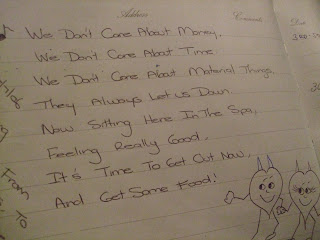 Address
Comments
Date
We Don't Care About Money,
We Don't Care About Time.
We Don't Care About Material Things,
They Always Let us Down.
Now Sitting Here In The Spa,
Feeling Really Good.
It's Time To Get Out Now,
And Get Some Food!
From
To